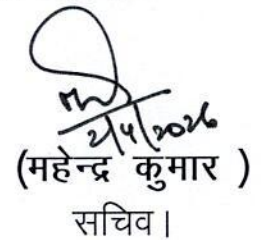 2/4/2026
(महेन्द्र कुमार )
सचिव।